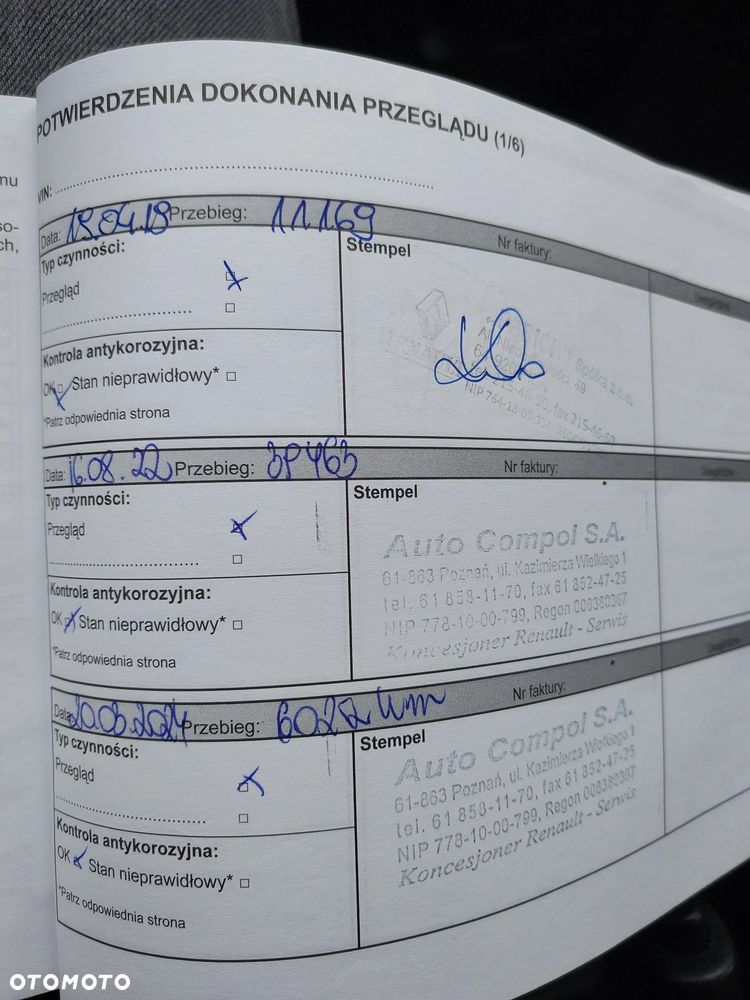 mu
so-
ch,
POTWIERDZENIA DOKONANIA PRZEGLĄDU (1/6)
VIN:
Data: 19.04.19 Przebieg: 11.169 Nr faktury:
Typ czynności:
Stempel
Przegląd
Kontrola antykorozyjna:
OK Stan nieprawidłowy*
*Patrz odpowiednia strona
Spółka z o.o.
49
fax 215-46-60
NIP 764-
Data: 16.08.22 Przebieg: 39463 Nr faktury:
Typ czynności:
Stempel
Przegląd
Kontrola antykorozyjna:
OK Stan nieprawidłowy*
*Patrz odpowiednia strona
Auto Compol S.A.
61-863 Poznań, ul. Kazimierza Wielkiego 1
tel. 61 858-11-70, fax 61 852-47-25
NIP 778-10-00-799, Regon 008380367
Koncesjoner Renault - Serwis
Data: 20.03.2024 Przebieg: Nr faktury:
Typ czynności:
Stempel
Przegląd
Kontrola antykorozyjna:
OK Stan nieprawidłowy*
*Patrz odpowiednia strona
Auto Compol S.A.
61-863 Poznań, ul. Kazimierza Wielkiego 1
tel. 61 858-11-70, fax 61 852-47-25
NIP 778-10-00-799, Regon 008380367
Koncesjoner Renault - Serwis
OTOMOTO